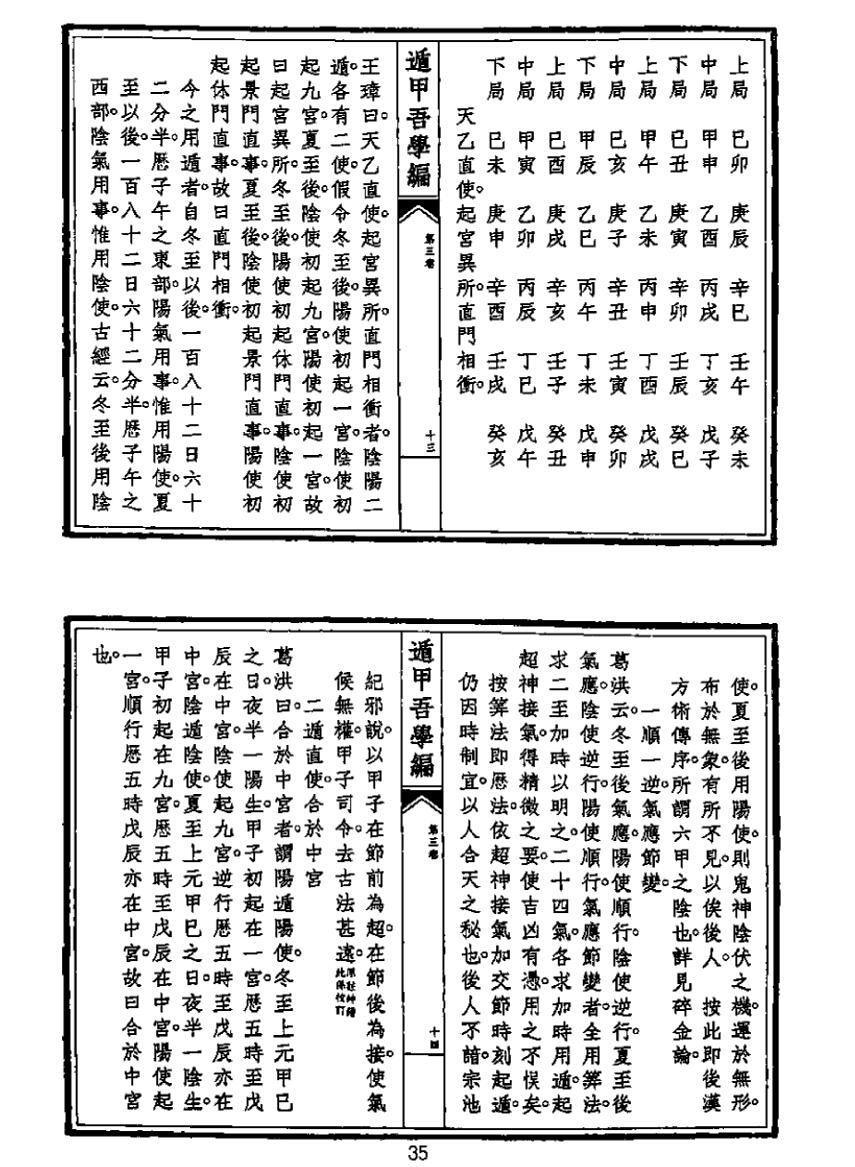 上局　己卯　庚辰　辛巳　壬午　癸未
中局　甲申　乙酉　丙戌　丁亥　戊子
下局　己丑　庚寅　辛卯　壬辰　癸巳
上局　甲午　乙未　丙申　丁酉　戊戌
中局　己亥　庚子　辛丑　壬寅　癸卯
下局　甲辰　乙巳　丙午　丁未　戊申
上局　己酉　庚戌　辛亥　壬子　癸丑
中局　甲寅　乙卯　丙辰　丁巳　戊午
下局　己未　庚申　辛酉　壬戌　癸亥
天乙直使。起宮異所。直門相衝。
遁甲吾學編
第三卷
十三
王璋曰。天乙直使。起宮異所。直門相衝者。陰陽二
遁。各有二使。假令冬至後。陽使初起一宮。陰使初
起九宮。夏至後。陰使初起九宮。陽使初起一宮。故
曰起宮異所。冬至後。陽使初起休門直事。陰使初
起景門直事。夏至後。陰使初起景門直事。陽使初
起休門直事。故曰直門相衝。
今之用遁者。自冬至以後。一百八十二日六十
二分半。歷子午之東部。陽氣用事。惟用陽使。夏
至以後。一百八十二日六十二分半。歷子午之
西部。陰氣用事。惟用陰使。古經云。冬至後用陰
使。夏至後用陽使。則鬼神陰伏之機。運於無形。
布於無象。有所不見。以俟後人。　按此即後漢
方術傳序。所謂六甲之陰也。詳見碎金論。
一順一逆。氣應節變。
葛洪云。冬至後氣應。陽使順行。陰使逆行。夏至後
氣應。陰使逆行。陽使順行。氣應節變者。全用筭法。
求二至加時以明之。二十四氣。各求加時用遁。起
超神接氣。得精微之要。使吉凶有憑。用之不悮矣。
按筭法即歷法。依超神接氣。加交節時刻起遁。
仍因時制宜。以人合天之秘也。後人不諳宗池
遁甲吾學編
第三卷
十四
紀邪說。以甲子在節前為超。在節後為接。使氣
候無權。甲子司令。去古法甚遠。
二遁直使。合於中宮
葛洪曰。合於中宮者。謂陽遁陽使。冬至上元甲己
之日。夜半一陽生。甲子初起在一宮。歷五時至戊
辰在中宮。陰使起九宮。逆行歷五時至戊辰亦在
中宮。陰遁陰使。夏至上元甲己之日。夜半一陰生。在
甲子初起在九宮。歷五時至戊辰在中宮。陽使起
一宮。順行歷五時戊辰亦在中宮。故曰合於中宮
也。
35